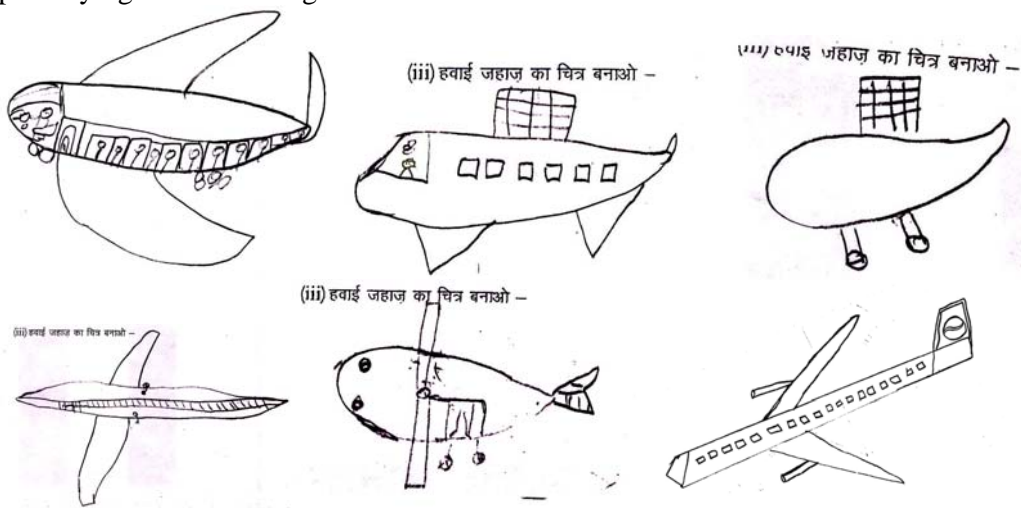 (iii) हवाई जहाज़ का चित्र बनाओ –
(iii) हवाई जहाज़ का चित्र बनाओ –
(iii) हवाई जहाज़ का चित्र बनाओ –
(iii) हवाई जहाज़ का चित्र बनाओ –